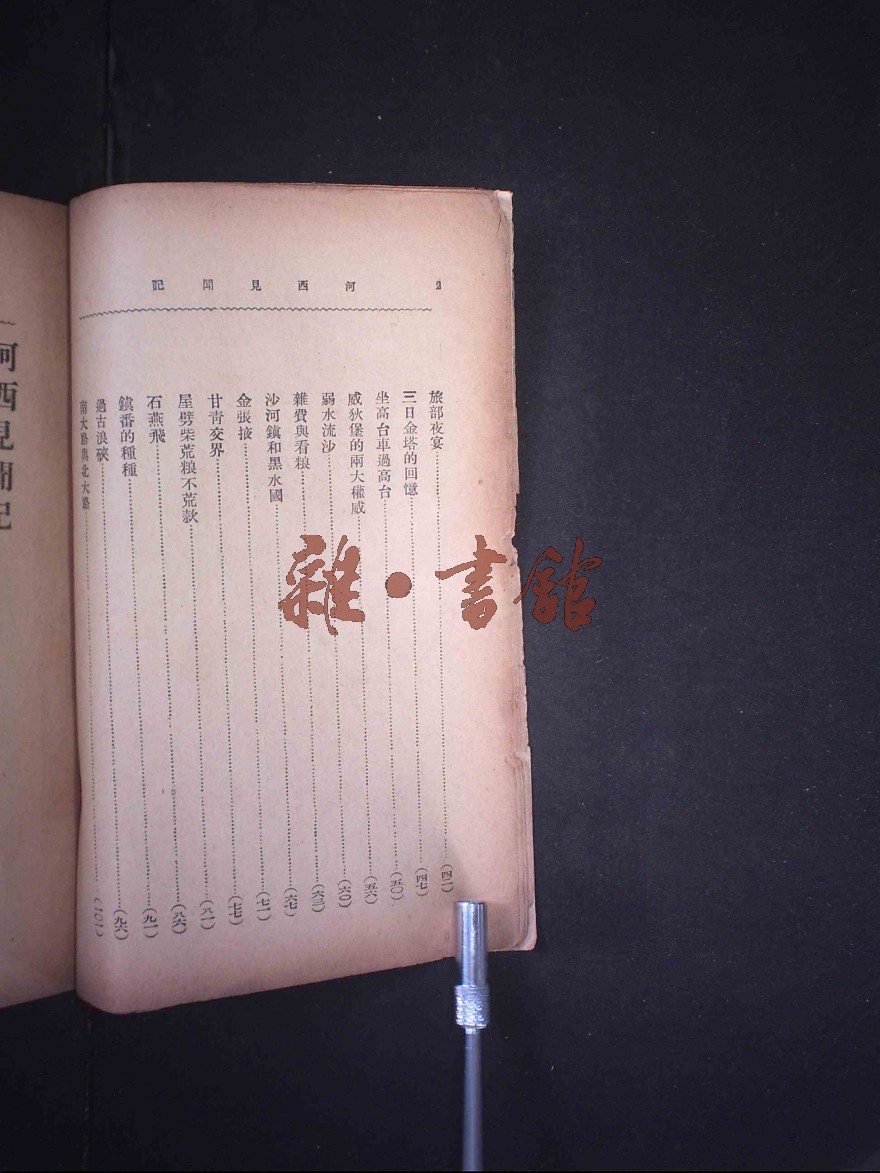 2 河西見聞記
旅部夜宴……(四二)
三日金塔的回憶……(四七)
坐高台車過高台……(五〇)
威狄堡的兩大權威……(五六)
弱水流沙……(六〇)
雜費與看粮……(六三)
沙河鎮和黑水國……(六七)
金張掖……(七一)
甘青交界……(七七)
屋劈柴荒粮不荒款……(八一)
石燕飛……(八六)
鎮番的種種……(九一)
過古浪硤……(九六)
南大路與北大路……(一〇一)
河西見聞記
雜·書館